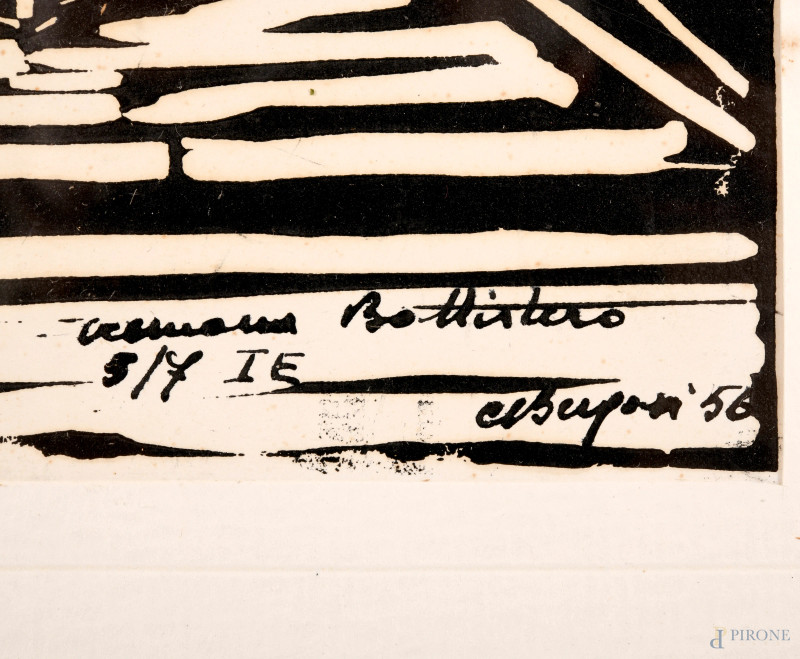 Cremona Battistero
5/7 IE
'56
PIRONE